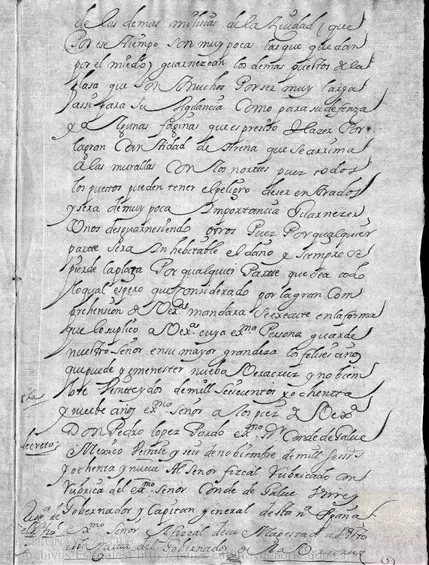 de las demas milisias de la Ziudad (que
Por ese tiempo son muy pocas las que quedan
por el miedo) guarnezcan los demas puestos de la
plasa que son muchos Por ser muy larga
assi para su vigilancia Como para su defenza
y algunas faginas que es presiso hazer Por
la gran Cantidad de Arena que se arrima
a las murallas Con los nortes pues todos
los puestos pueden tener el peligro de ser entrados
y sera de muy poca Importancia Guarnezer
Unos desguarnesiendo otros Pues Por qualquier
parte sera Inhebitable el daño y siempre se
pierde la plaza Por qualquier Parte que sea todo
lo qual espero que considerado por la gran Com
prehension de Vexª mandara se execute en la forma
que lo suplico a Vexª cuya exmª Persona guarde
nuestro Señor en su mayor grandeza los felises años
que puede y e menester nueba Veracruz y nobiem
bre Veinte y dos de mill seiscientos y ochenta
y nuebe años exmo Señor a los pies de Vexª
Don Pedro lopez Pardo exmo Sr Conde de Galue
decreto
Mexico Veinte y seis de nobiembre de mill seiss
y ochenta y nueve Al Señor fiscal Rubricado con
rubrica del exmo Señor Conde de Galue Virrey
Gobernador y Capitan general desta nª España
exmo Señor El fiscal de su Magestad a Visto
Gobernador de la Veracruz